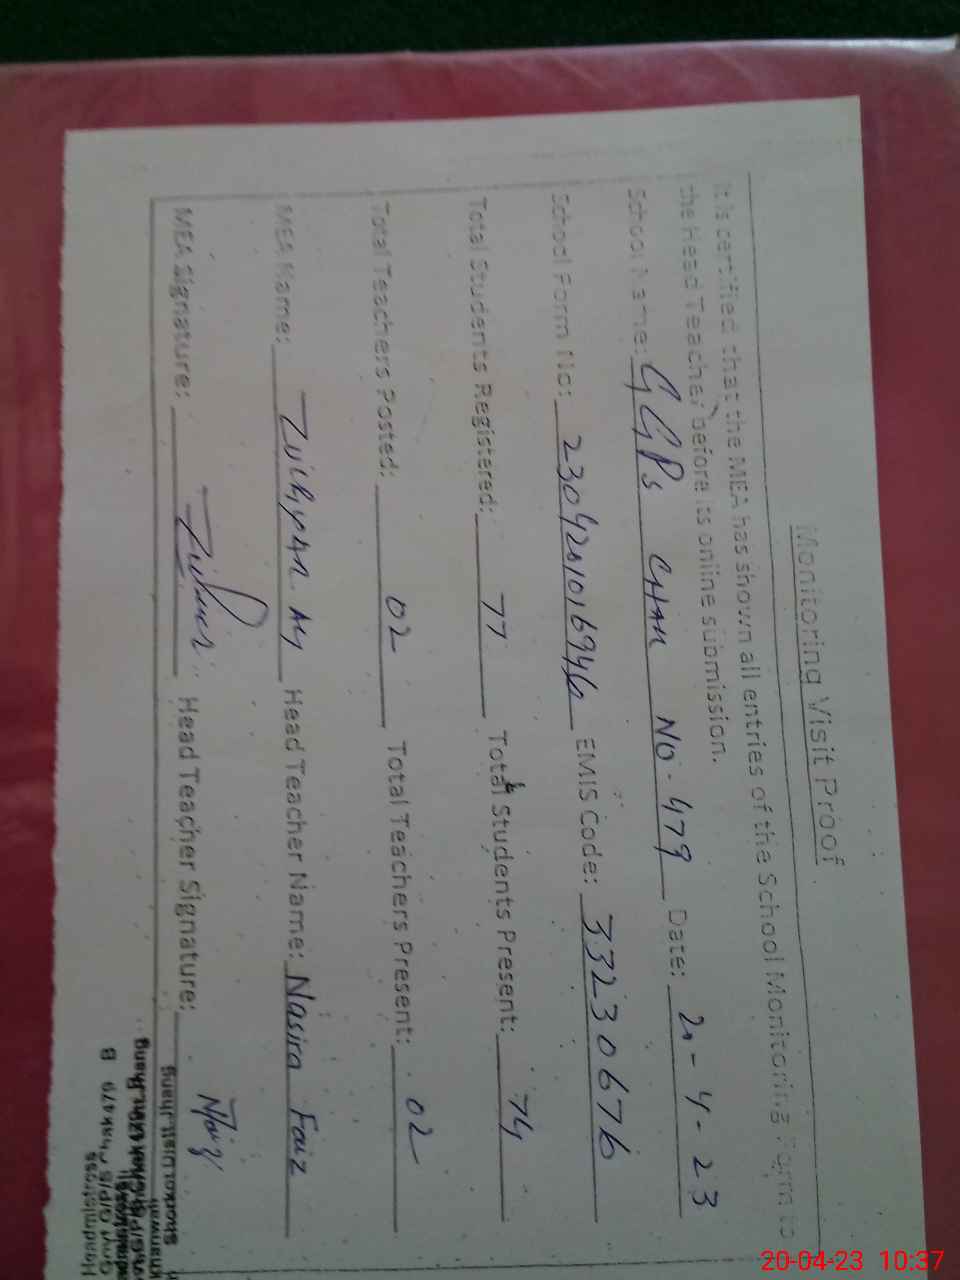 Monitoring Visit Proof
It is certified that the MEA has shown all entries of the School Monitoring Form to
the Head Teacher before its online submission.
School Name: GGPS CHAK NO. 479 Date: 20-4-23
School Form No: EMIS Code: 33230676
Total Students Registered: 77 Total Students Present: 74
Total Teachers Posted: 02 Total Teachers Present: 02
MEA Name: Head Teacher Name: Nasira Faiz
MEA Signature: Head Teacher Signature: NFaiz
Shorkot Distt. Jhang
Headmistress
Govt G/P/S Chak 479 B
20-04-23 10:37